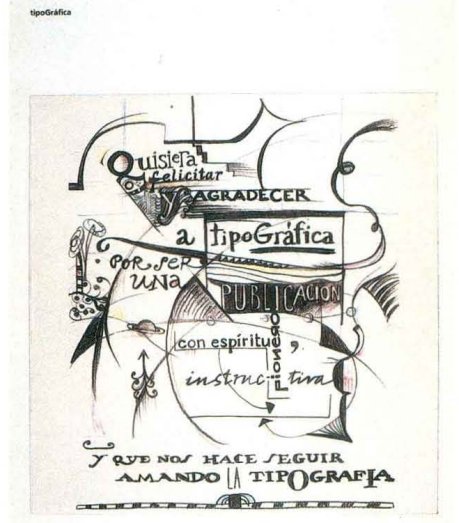 tipoGráfica
Quisiera
felicitar
y AGRADECER
a tipoGráfica
POR SER
UNA
PUBLICACION
con espíritu pionero,
instructiva
Y QUE NOS HACE SEGUIR
AMANDO LA TIPOGRAFIA